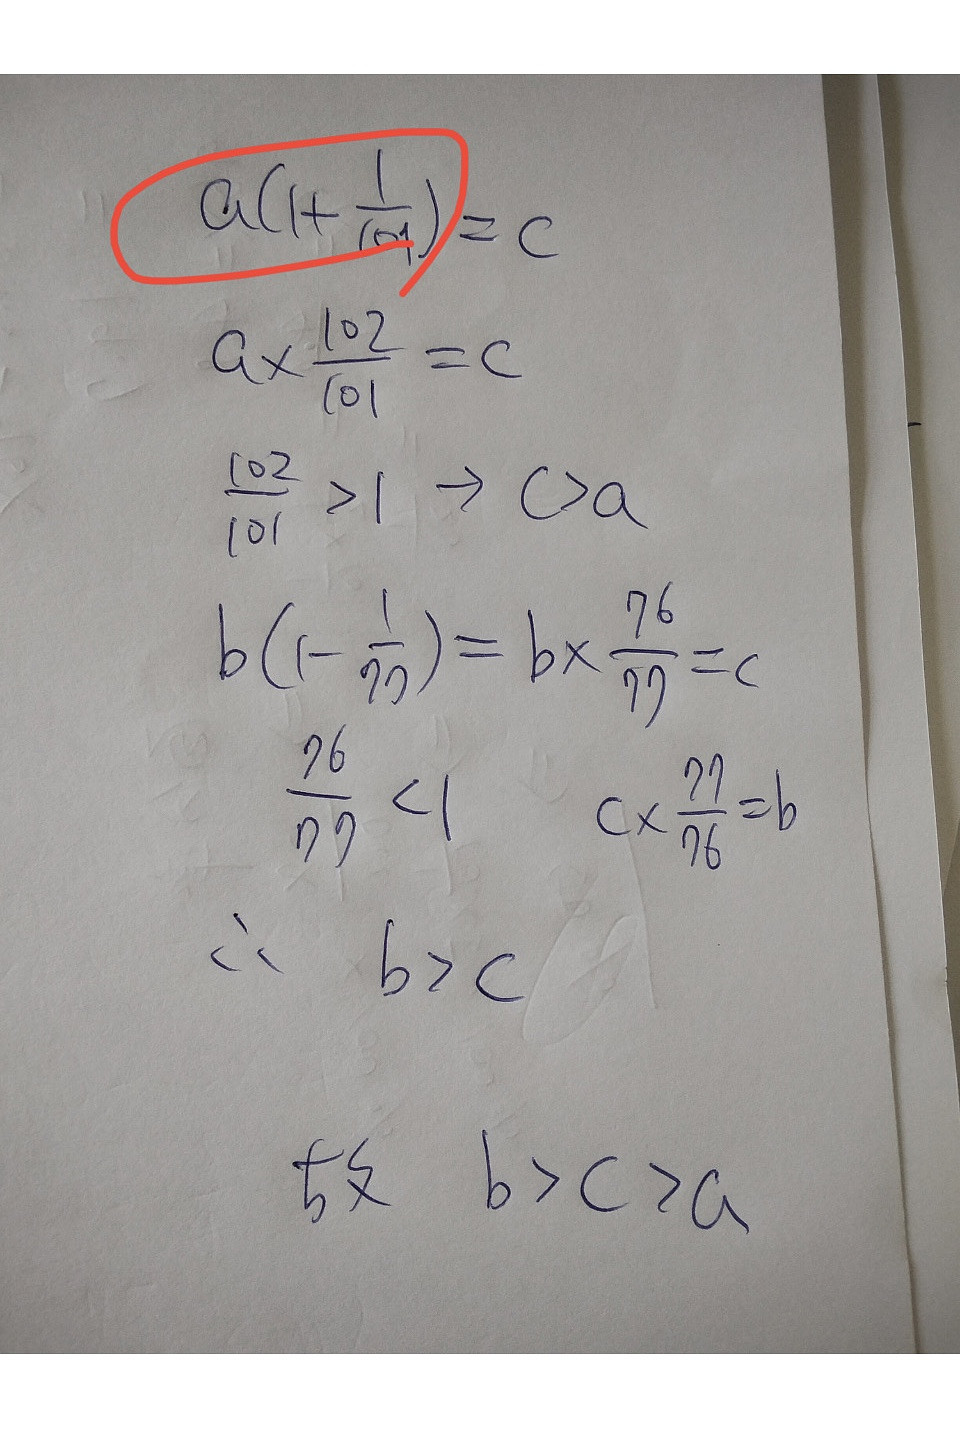 a(1+1/101)=c
a×102/101=c
102/101>1→c>a
b(1-1/77)=b×76/77=c
76/77<1 c×77/76=b
∴ b>c
故 b>c>a